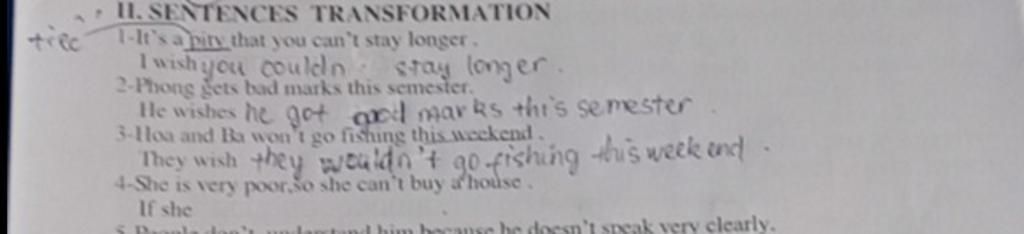 II. SENTENCES TRANSFORMATION
tiếc 1-It's a pity that you can't stay longer.
I wish you couldn stay longer.
2-Phong gets bad marks this semester.
He wishes he got good marks this semester.
3-Hoa and Ba won't go fishing this weekend.
They wish they wouldn't go fishing this weekend.
4-She is very poor,so she can't buy a house.
If she
5 People don't understand him because he doesn't speak very clearly.